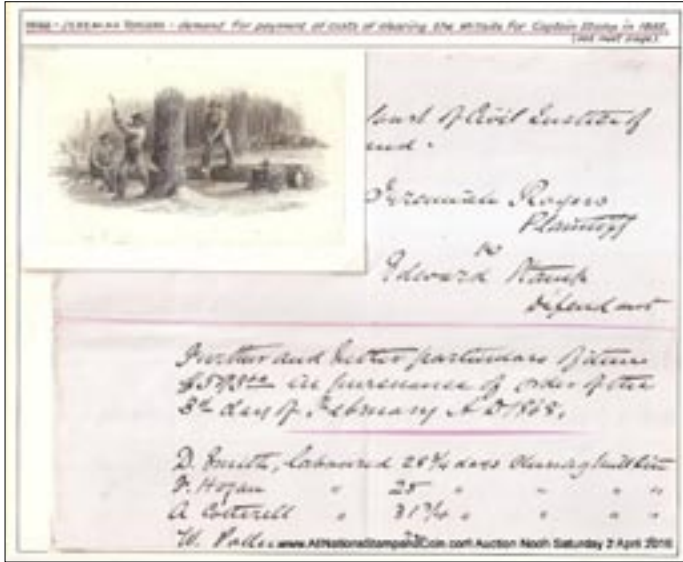 JEREMIAH ROGERS - demand for payment of costs of clearing the millsite for Captain Stamp in 1865.
(see next page).
Court of Civil Justice of
and.
Jeremiah Rogers
Plaintiff
vs
Edward Stamp
Defendant
Further and better particulars of
in pursuance of order of the
3rd day of February A D 1868.
D. Smith, laboured 28 3/4 days clearing
F. Hogan " 25 " " " "
A Cotterell " 31 3/4 " " " "
W.
www.AllNationsStampandCoin.com Auction Noon Saturday 2 April 2016